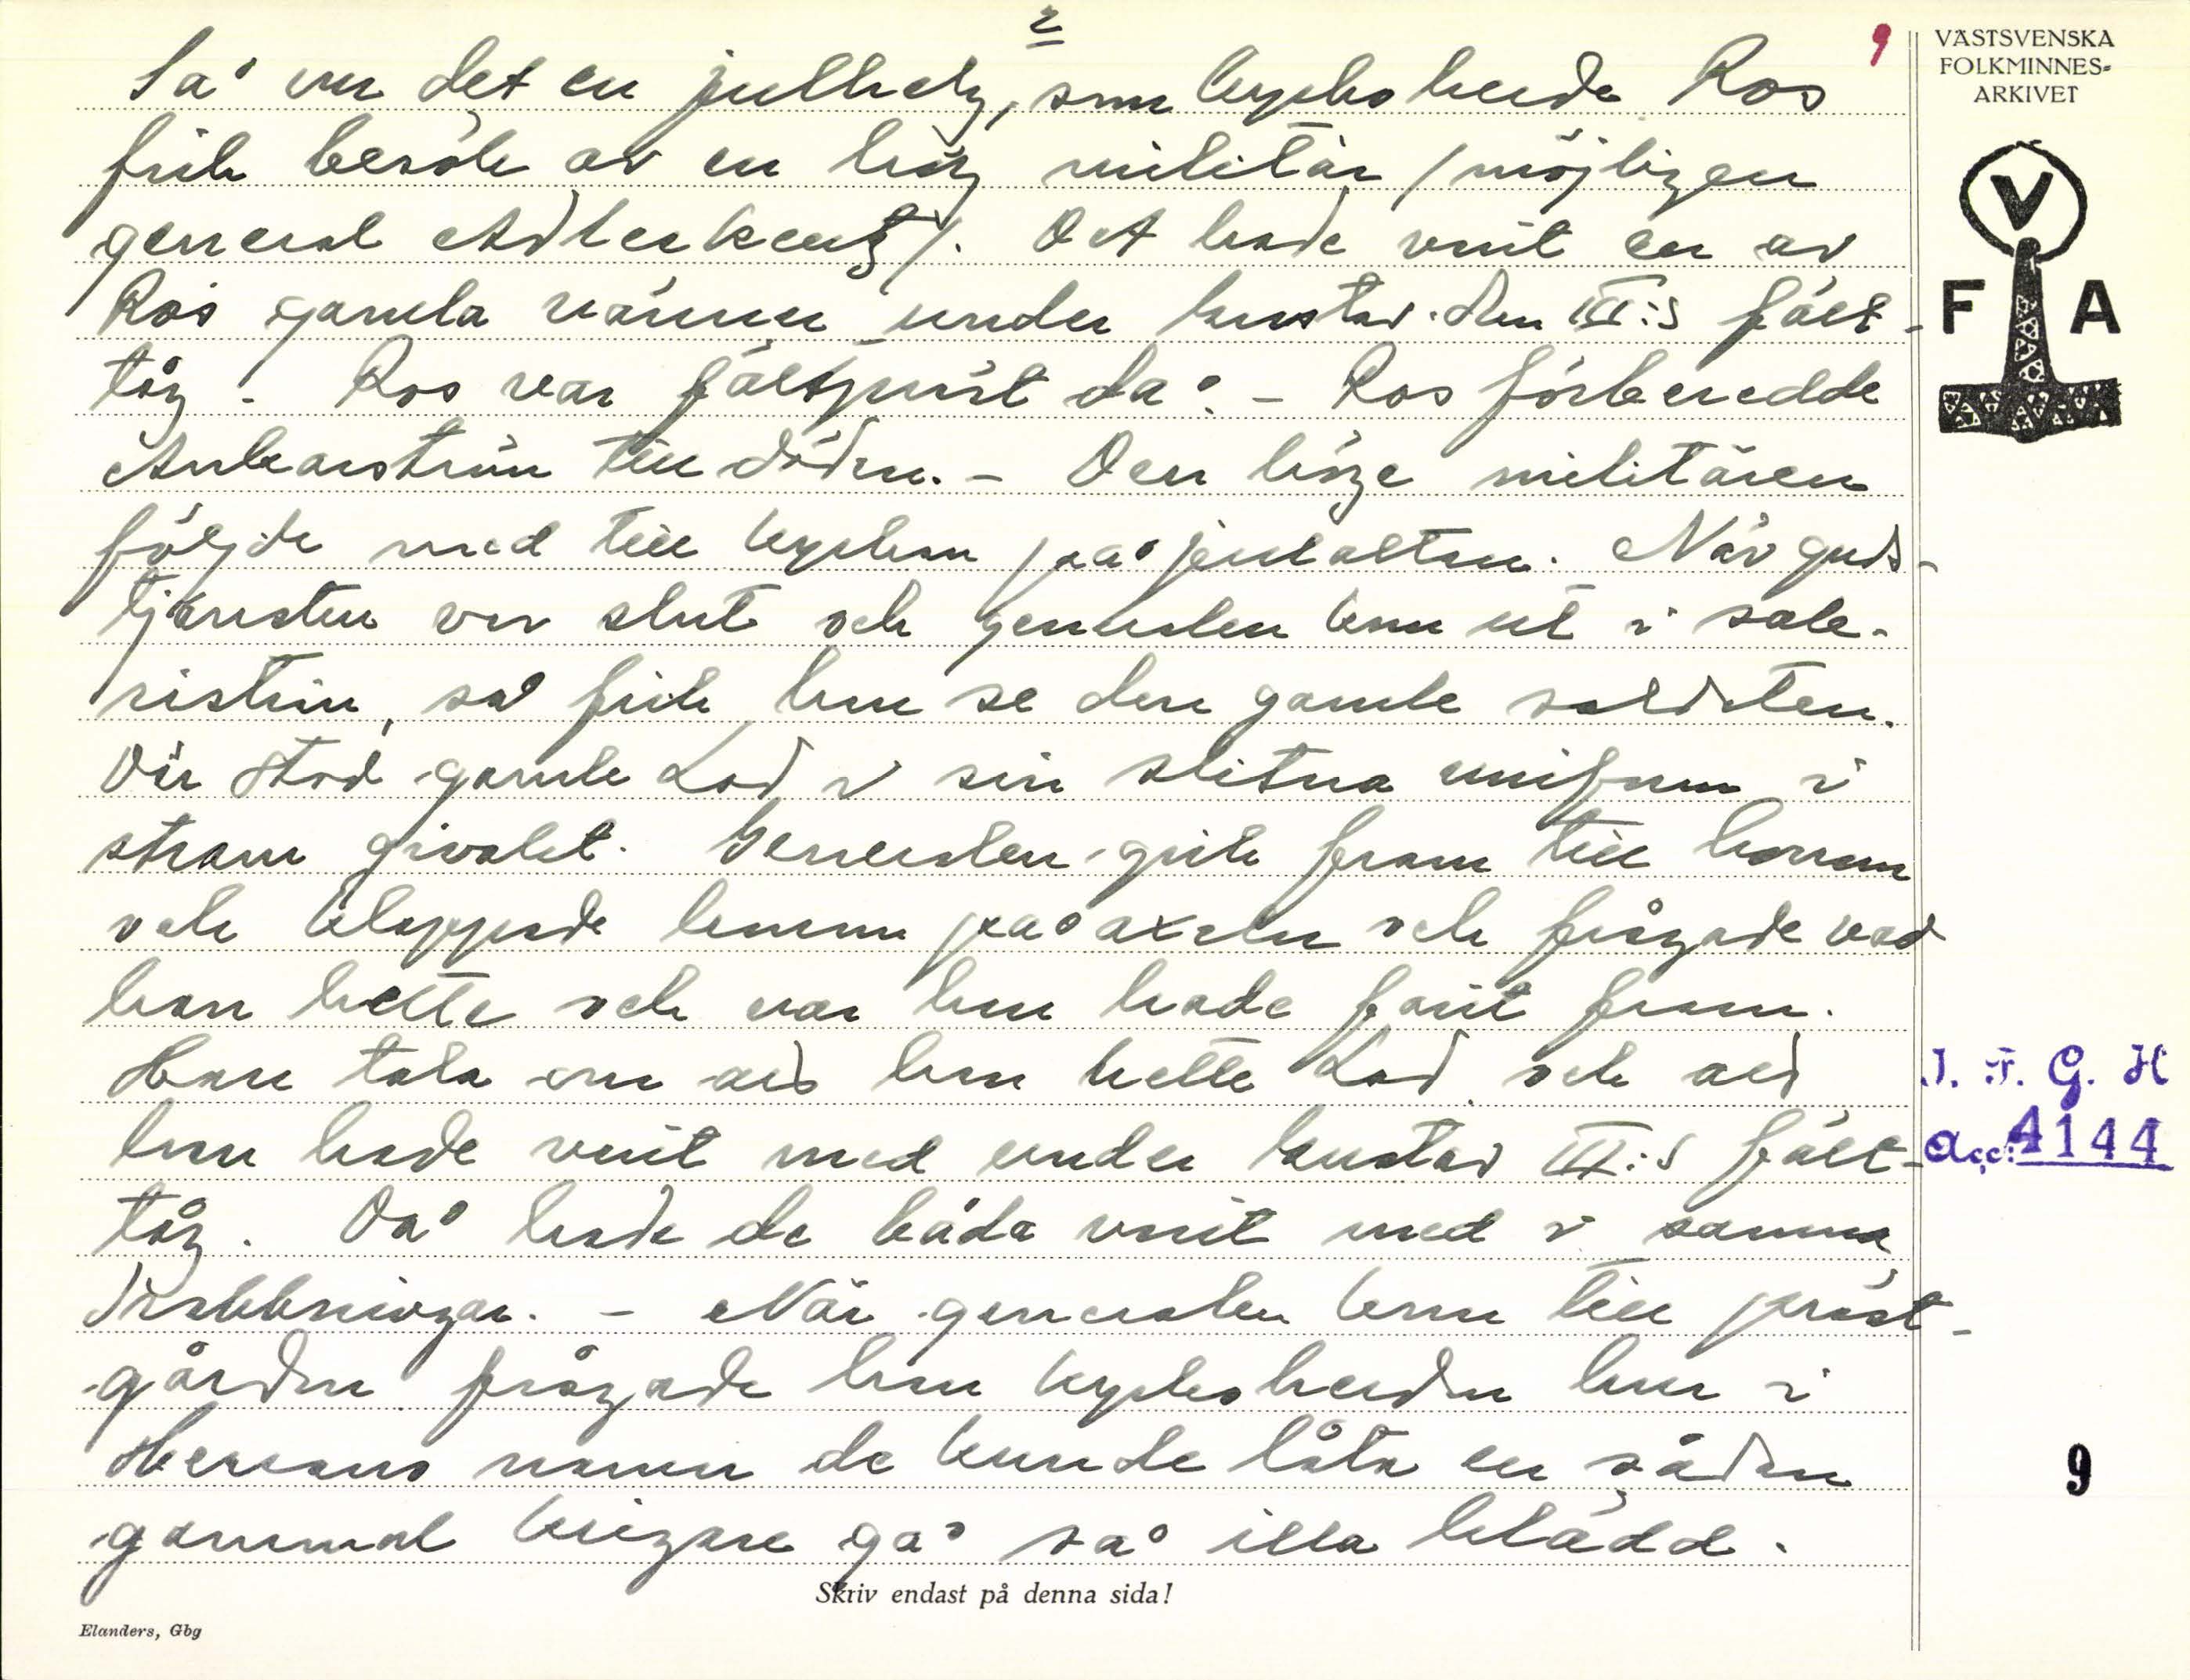 2
9
Så var det en julhelg, som kyrkoherde Ros
fick besök av en hög militär /möjligen
general Adlerkeutz/. Det hade varit en av
Ros gamla vänner under Gustav den III:s fält-
tåg. Ros var fältpräst då. - Ros förberedde
Ankarström till döden. - Den höge militären
följde med till kyrkan på julottan. När guds-
tjänsten var slut och generalen kom ut i sak-
ristian, så fick han se den gamle soldaten.
Där stod gamle Lod i sin slitna uniform i
stram givakt. Generalen gick fram till honom
och klappade honom på axeln och frågade vad
han hette och var han hade farit fram.
Han tala om att han hette Lod och att
han hade varit med under Gustav III:s fält-
tåg. Då hade de båda varit med i samma
drabbningar. - När generalen kom till präst-
gården frågade han kyrkoherden hur i
Herrans namn de kunde låta en sådan
gammal krigare gå så illa klädd.
Skriv endast på denna sida!
Elanders, Gbg
VÄSTSVENSKA
FOLKMINNES-
ARKIVET
V
F A
I. F. G. H
Acc. 4144
9